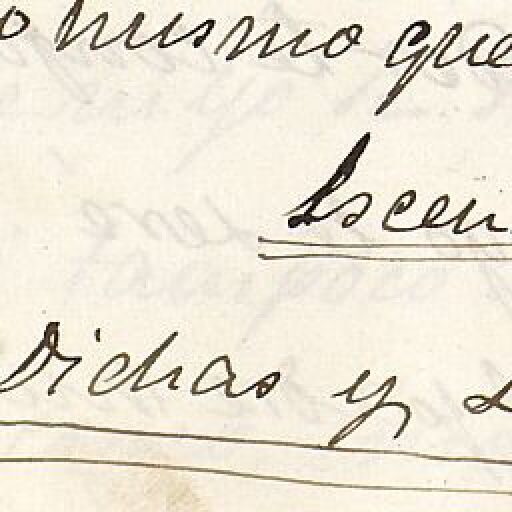 o mismo que
Escen
Dichas y